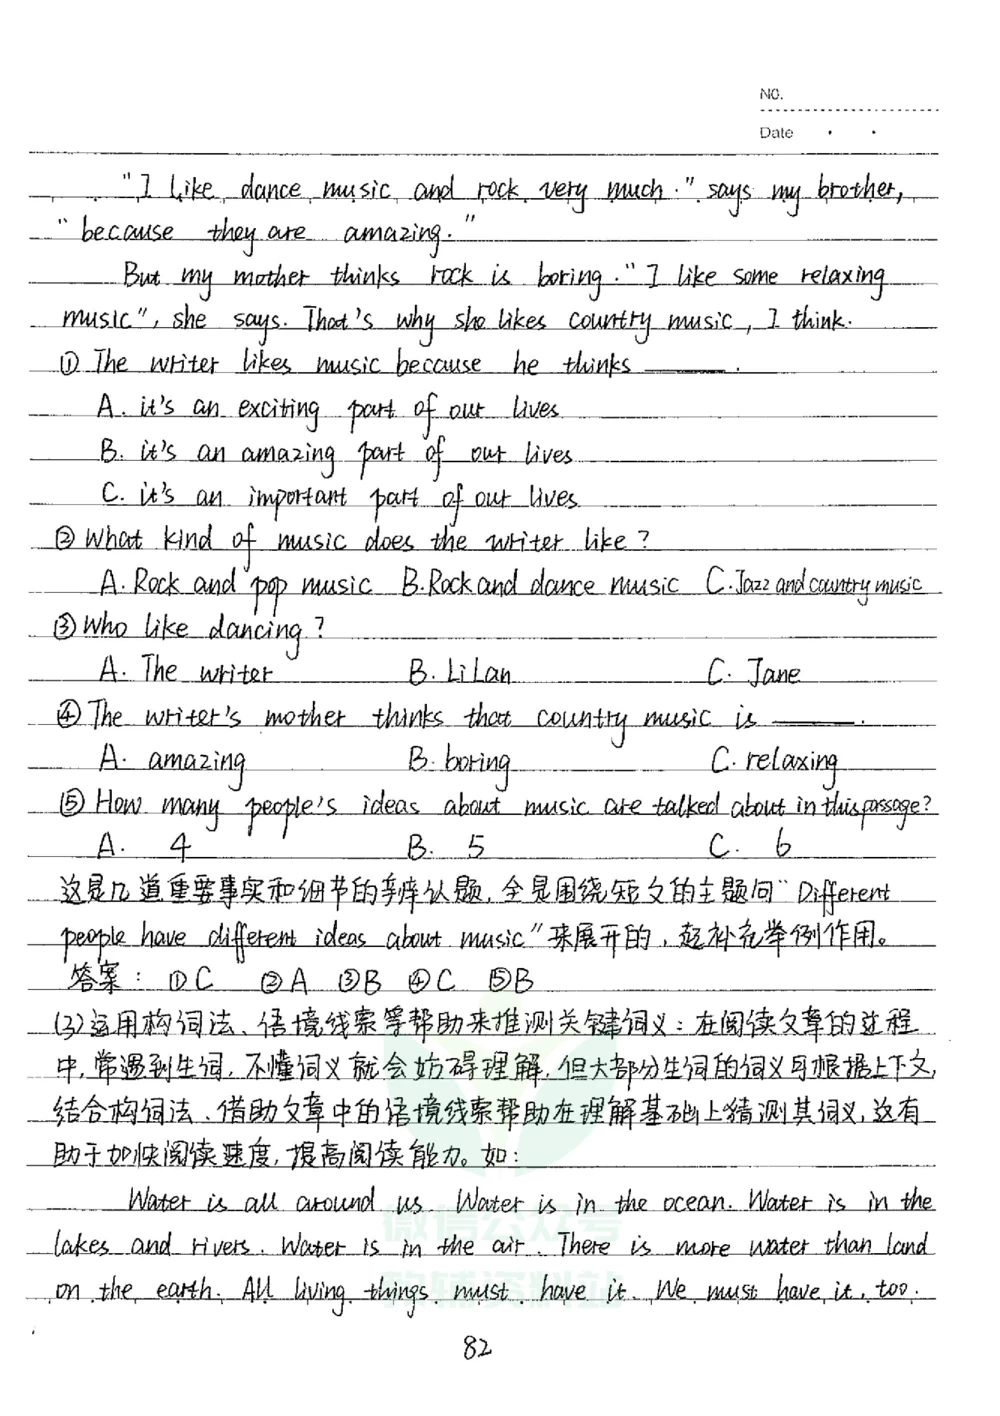 NO.
Date
"I like dance music and rock very much." says my brother,
"because they are amazing."
But my mother thinks rock is boring. "I like some relaxing
music", she says. That's why she likes country music, I think.
① The writer likes music because he thinks ______.
A. it's an exciting part of our lives
B. it's an amazing part of our lives
C. it's an important part of our lives
② What kind of music does the writer like?
A. Rock and pop music B. Rock and dance music C. Jazz and country music
③ Who like dancing?
A. The writer B. Li Lan C. Jane
④ The writer's mother thinks that country music is ______.
A. amazing B. boring C. relaxing
⑤ How many people's ideas about music are talked about in this passage?
A. 4 B. 5 C. 6
这是几道重要事实和细节的辨认题,全是围绕短文的主题问"Different
people have different ideas about music"来展开的,起补充举例作用。
答案: ①C ②A ③B ④C ⑤B
(3)运用构词法、语境线索等帮助来推测关键词义:在阅读文章的过程
中,常遇到生词,不懂词义就会妨碍理解,但大部分生词的词义可根据上下文,
结合构词法、借助文章中的语境线索帮助在理解基础上猜测其词义,这有
助于加快阅读速度,提高阅读能力。如:
Water is all around us. Water is in the ocean. Water is in the
lakes and rivers. Water is in the air. There is more water than land
on the earth. All living things must have it. We must have it, too.
微信公众号
教辅资料站
82